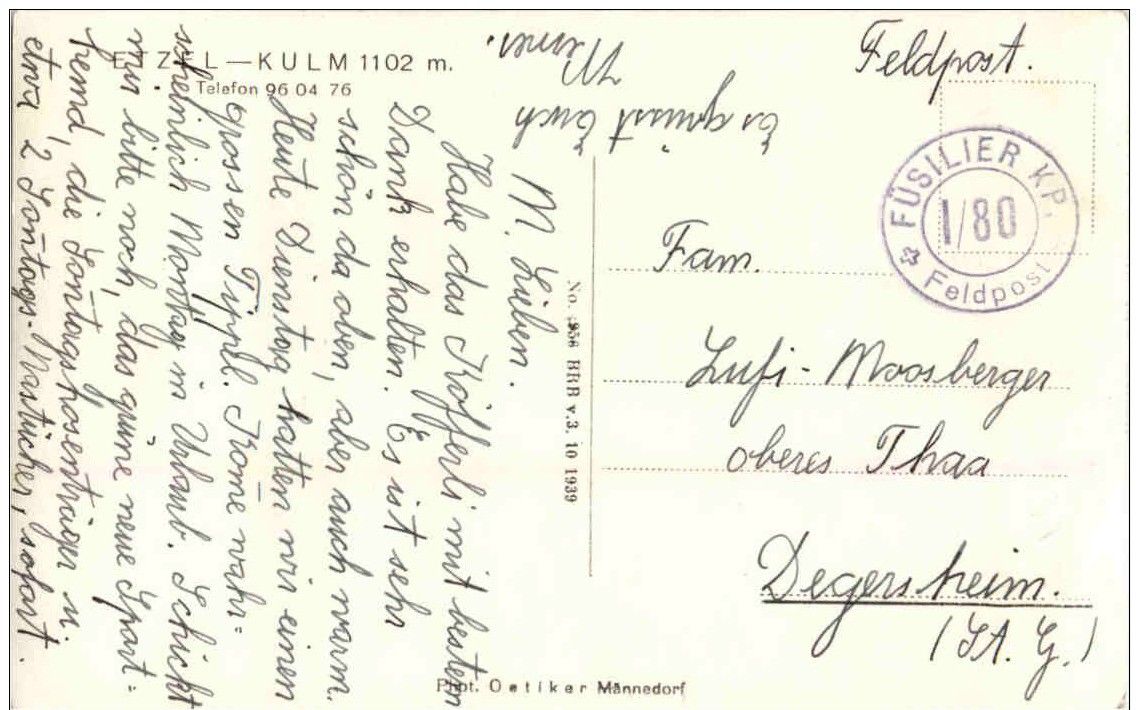 ETZEL—KULM 1102 m.
Telefon 96 04 76
M. Lieben.
Habe das Köfferli mit bestem
Dank erhalten. Es ist sehr
schön da oben, aber auch warm.
Heute Dienstag hatten wir einen
grossen Tippel. Kom̄e wahr=
scheinlich Montag in Urlaub. Schickt
mir bitte noch, das grüne neue Sport=
hemd, die Son̄tagshosenträger u.
etwa 2 Son̄tags-Nastücher, sofort.
Es grüsst Euch
Feldpost.
FÜSILIER KP.
I/80
Feldpost
Fam.
Lufi-Moosberger
oberes Thaa
Degersheim.
(St. G.)
BRB v. 3. 10 1939
Phot. Oetiker Männedorf